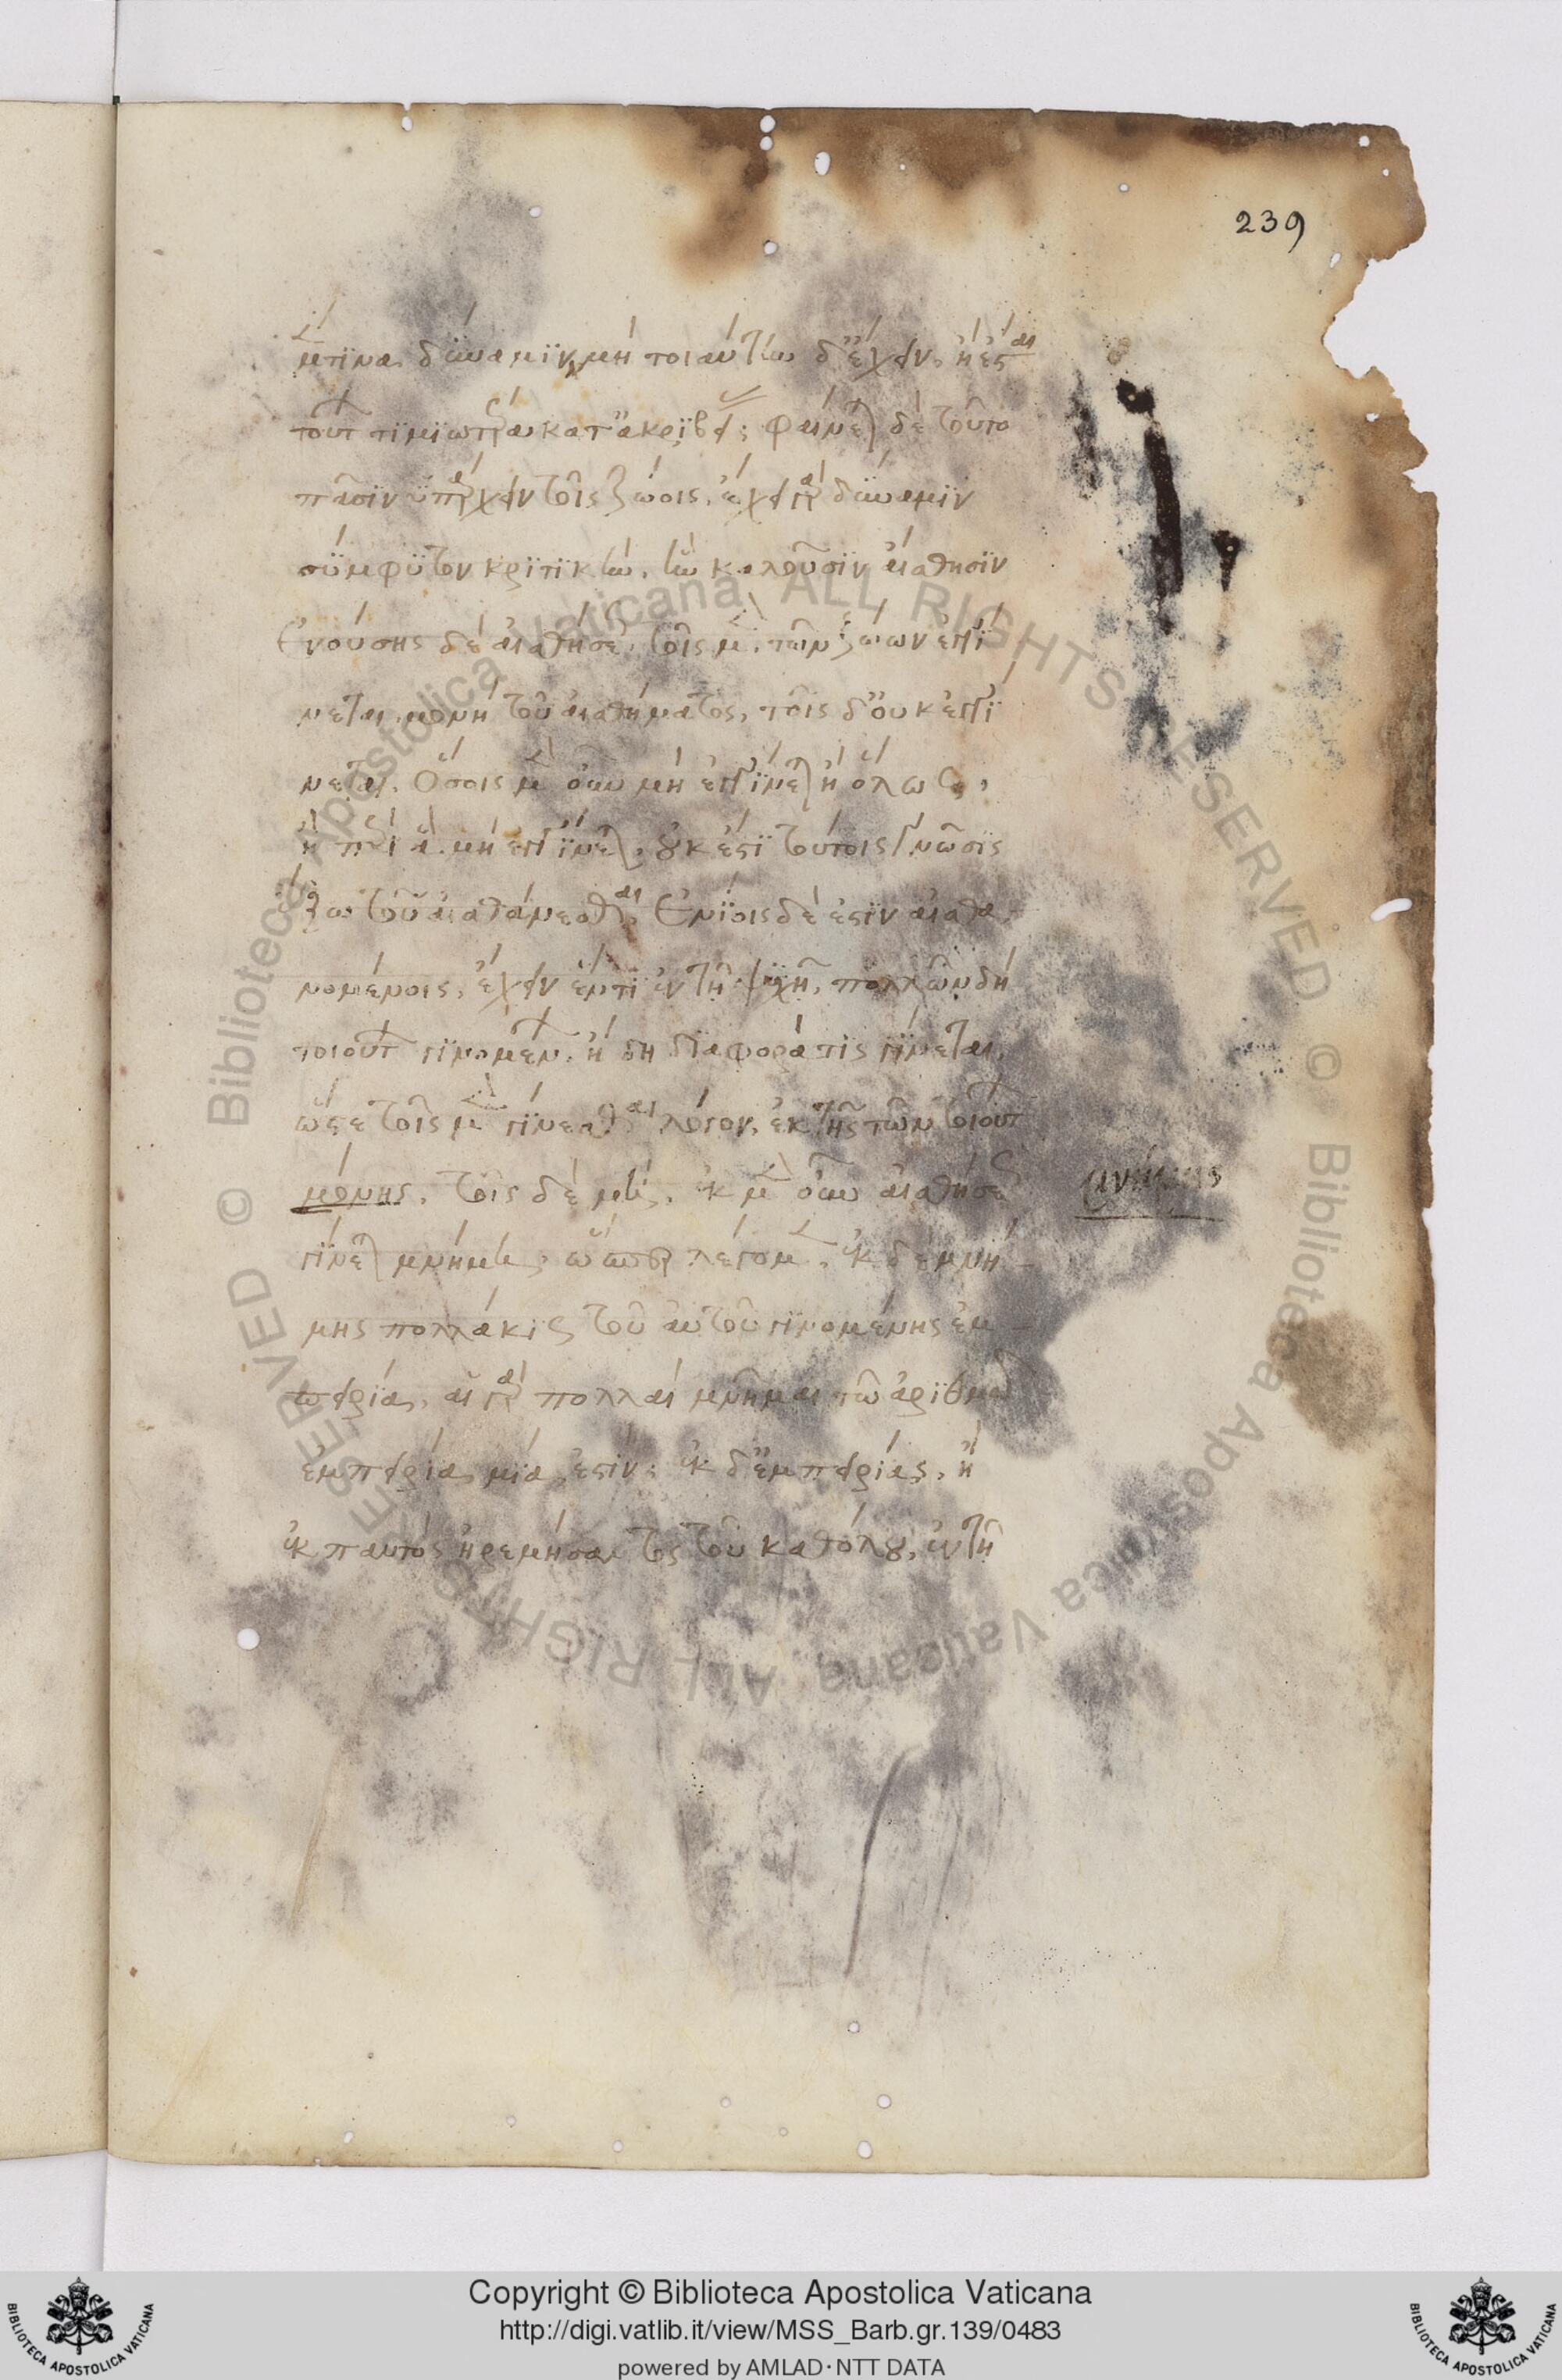 239
μέν τινα δύναμιν, μὴ τοιαύτην δ' ἔχειν, ἣ ἔσται
τούτων τιμιωτέρα κατ' ἀκρίβειαν· φαίνεται δὲ τοῦτο
πᾶσιν ὑπάρχειν τοῖς ζώοις. ἔχει γὰρ δύναμιν
σύμφυτον κριτικὴν, ἣν καλοῦσιν αἴσθησιν
Ἐνούσης δὲ αἰσθήσεως, τοῖς μὲν τῶν ζώων ἐγγί
νεται μονὴ τοῦ αἰσθήματος, τοῖς δ' οὐκ ἐγγί
νεται. Ὅσοις μὲν οὖν μὴ ἐγγίνεται ἢ ὅλως,
ἢ περὶ ἃ μὴ ἐγγίνεται, οὐκ ἔστι τούτοις γνῶσις
ἔξω τοῦ αἰσθάνεσθαι. Ἐνίοις δέ ἐστιν αἰσθα
νομένοις, ἔχειν ἕν τι ἐν τῇ ψυχῇ. πολλῶν δὴ
τοιούτων γινομένων, ἤδη διαφορά τις γίνεται.
ὥστε τοῖς μὲν γίνεσθαι λόγον, ἐκ τῆς τῶν τοιούτων
μονῆς. τοῖς δὲ μή. ἐκ μὲν οὖν αἰσθήσεως
γίνεται μνήμη, ὥσπερ λέγομεν. ἐκ δὲ μνή
μης πολλάκις τοῦ αὐτοῦ γινομένης ἐμ
πειρία. αἱ γὰρ πολλαὶ μνῆμαι τῷ ἀριθμῷ
ἐμπειρία μία ἐστίν· ἐκ δ' ἐμπειρίας, ἢ
ἐκ παντὸς ἠρεμήσαντος τοῦ καθόλου, ἐν τῇ
Copyright © Biblioteca Apostolica Vaticana
http://digi.vatlib.it/view/MSS_Barb.gr.139/0483
powered by AMLAD·NTT DATA
BIBLIOTECA APOSTOLICA VATICANA
BIBLIOTECA APOSTOLICA VATICANA
© Biblioteca Apostolica Vaticana ALL RIGHTS RESERVED © Biblioteca Apostolica Vaticana ALL RIGHTS RESERVED